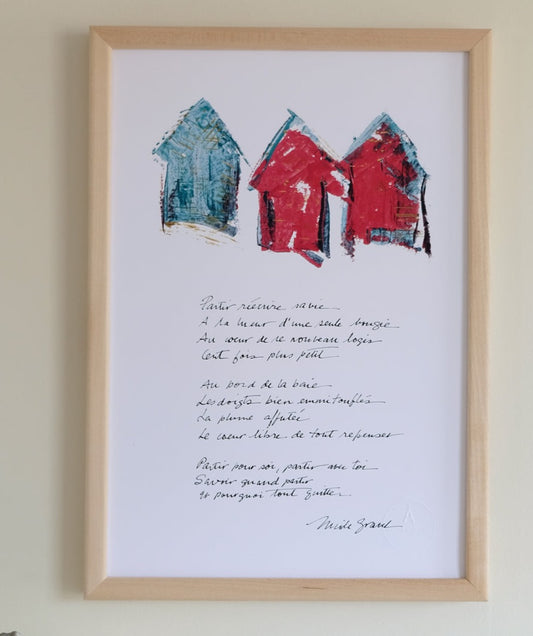 Partir réécrire sa vie
A la lueur d'une seule bougie
Au coeur de ce nouveau logis
Cent fois plus petit
Au bord de la baie
Les doigts bien emmitouflés
La plume affutée
Le coeur libre de tout repenser
Partir pour soi, partir avec toi
Savoir quand partir
et pourquoi tout quitter.